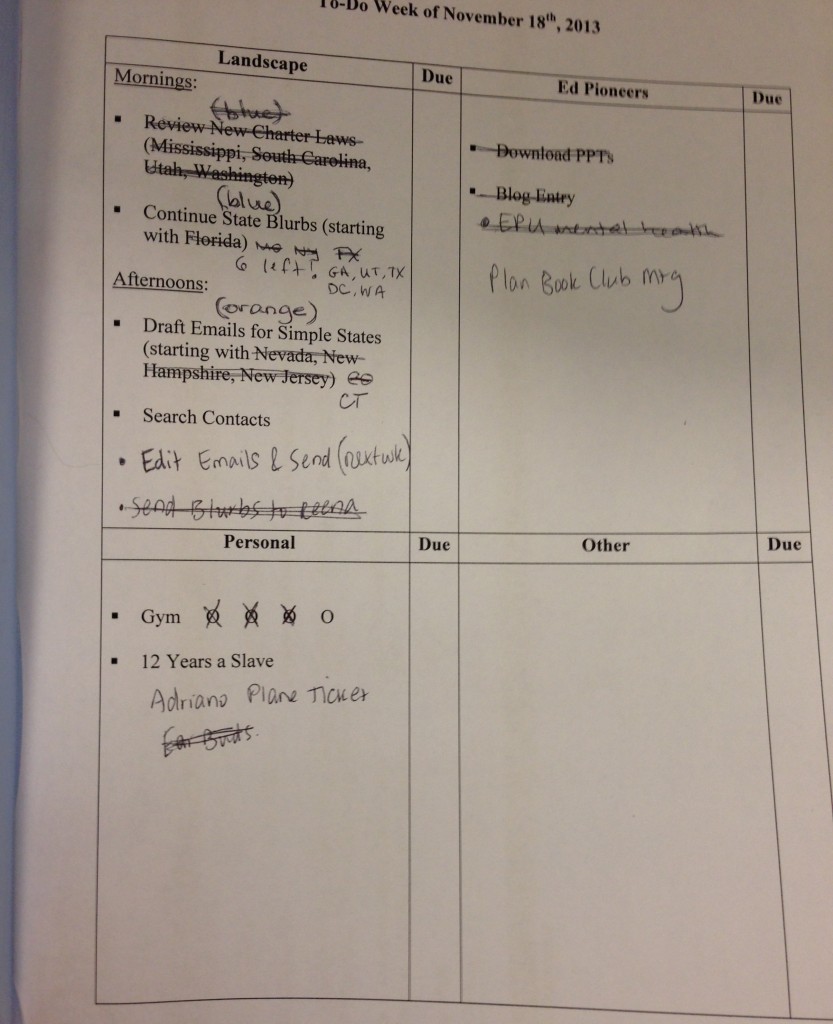 To-Do Week of November 18th, 2013
Landscape
Due
Ed Pioneers
Due
Mornings:
(blue)
Review New Charter Laws
(Mississippi, South Carolina,
Utah, Washington)
(blue)
Continue State Blurbs (starting
with Florida) MO NY TX
6 left! GA, UT, TX
DC, WA
Afternoons:
(orange)
Draft Emails for Simple States
(starting with Nevada, New
Hampshire, New Jersey) CO
CT
Search Contacts
Edit Emails & Send (next wk)
Send Blurbs to Reena
Download PPTs
Blog Entry
EPU mental health
Plan Book Club Mtg
Personal
Due
Other
Due
Gym O O O O
12 Years a Slave
Adriano Plane Ticket
Ear Buds.